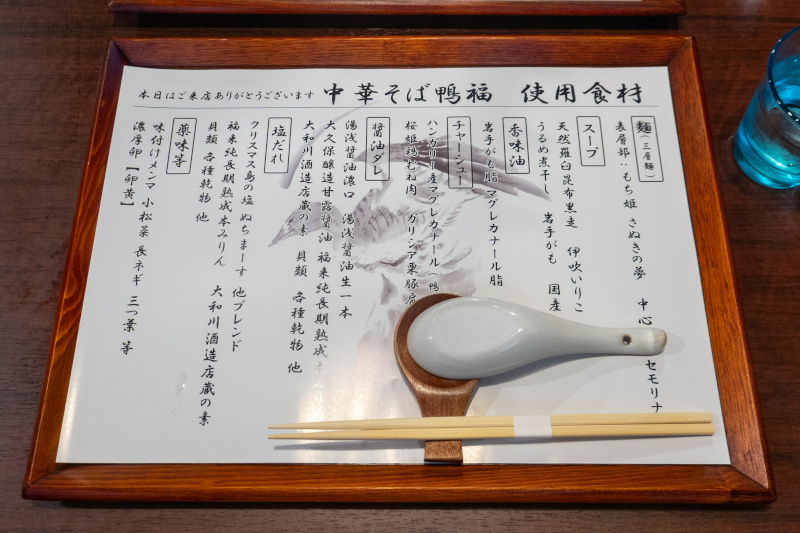 本日はご来店ありがとうございます
中華そば鴨福 使用食材
麺(三層麺)
表層部:もち姫 さぬきの夢
中心
セモリナ
スープ
天然羅臼昆布黒走 伊吹いりこ
うるめ煮干し 岩手がも 国産
香味油
岩手がも脂 マグレカナール脂
チャーシュー
ハンガリー産マグレカナール(鴨
桜姫鶏むね肉 ガリシア栗豚肩
醤油ダレ
湯浅醤油濃口 湯浅醤油生一本
大久保醸造甘露醤油 福来純長期熟成
大和川酒造店蔵の素 貝類 各種乾物 他
塩だれ
クリスマス島の塩 ぬちまーす 他ブレンド
福来純長期熟成本みりん 大和川酒造店蔵の素
貝類 各種乾物 他
薬味等
味付けメンマ 小松菜 長ネギ 三つ葉 等
濃厚卵【卵黄】